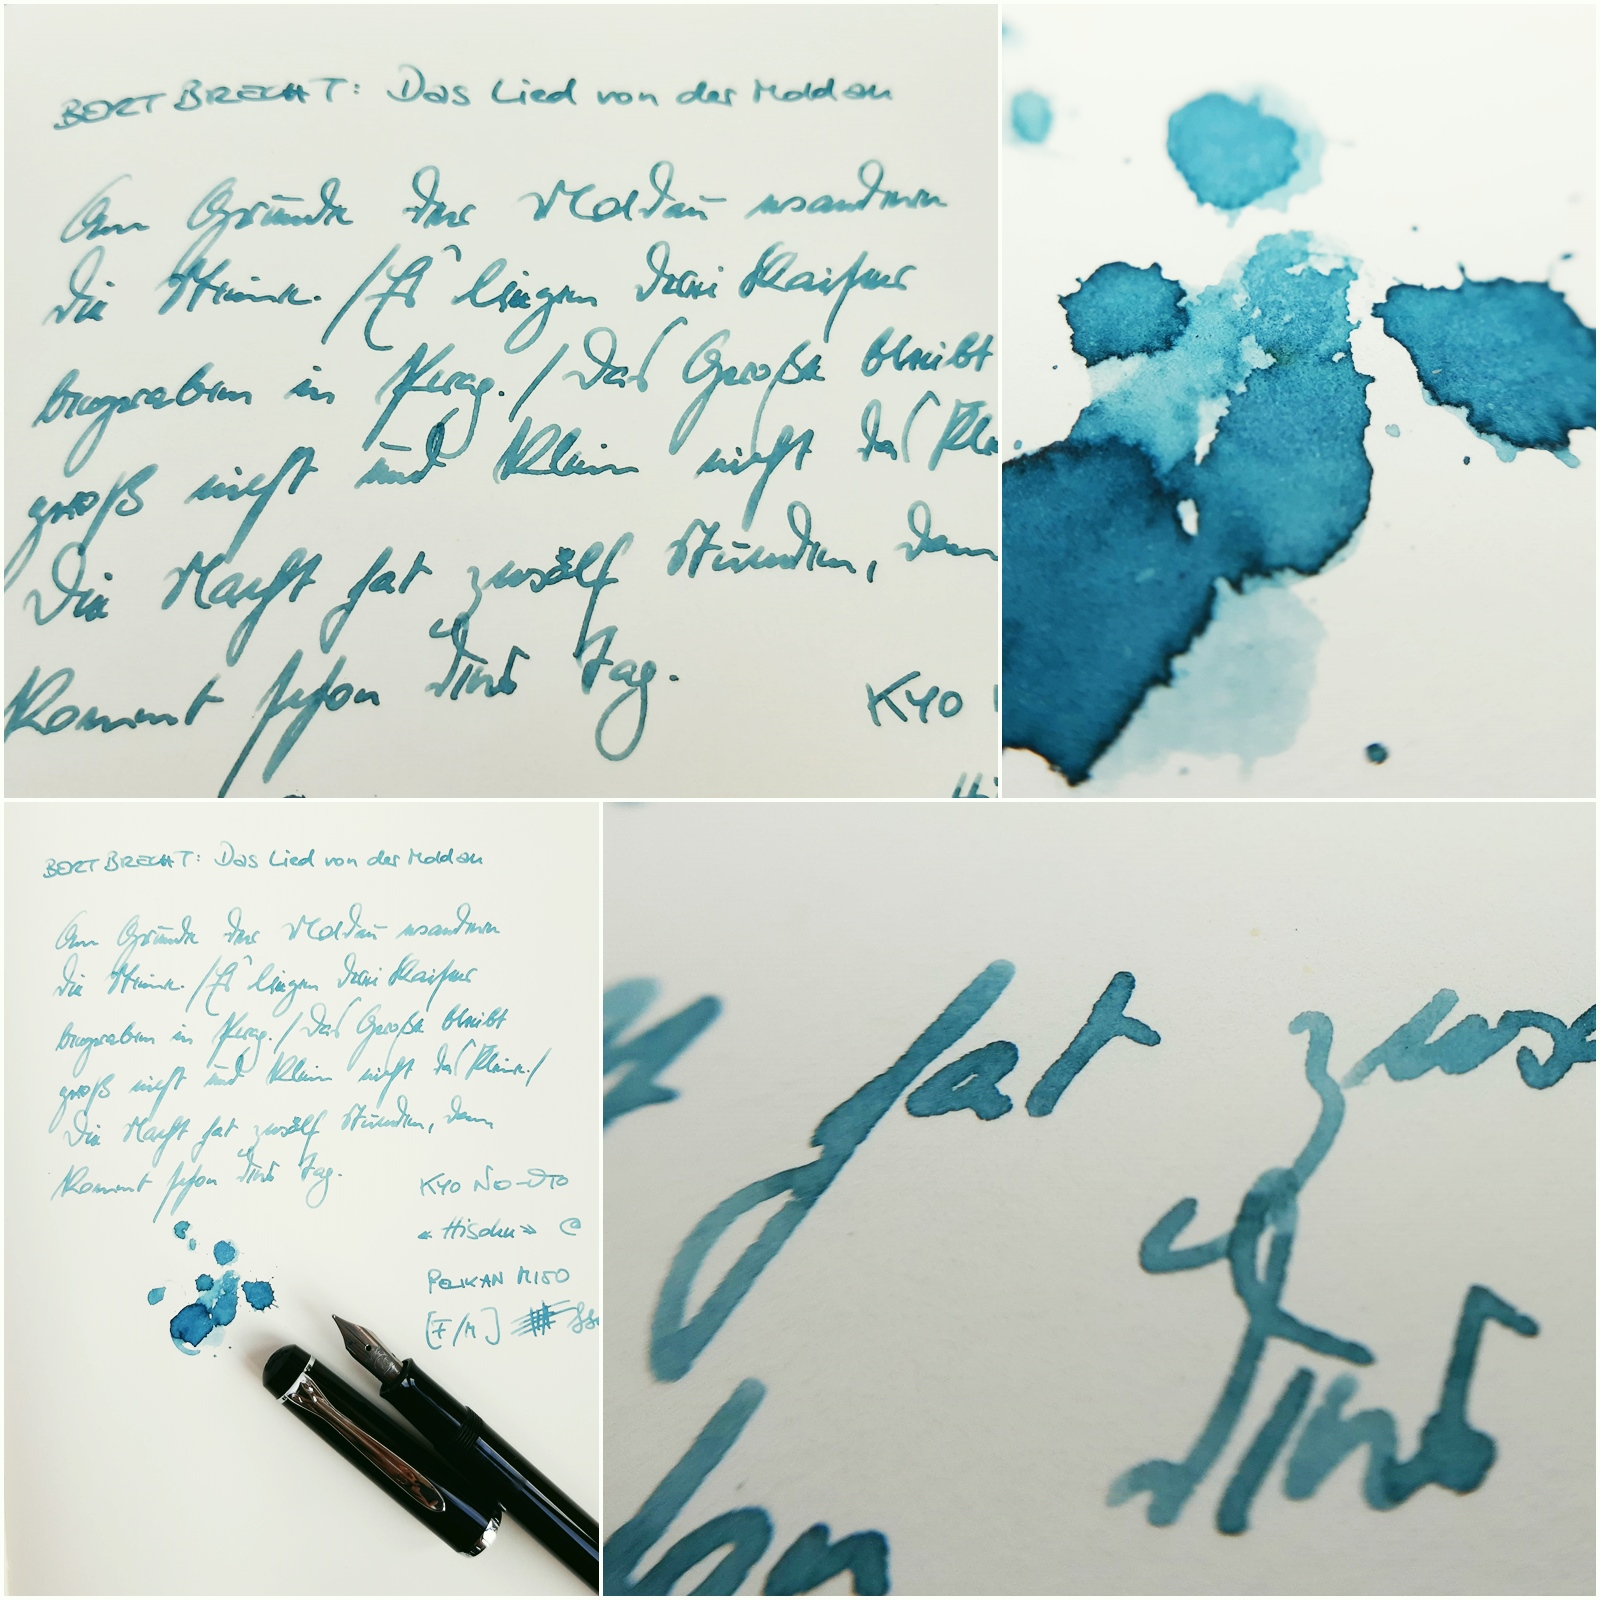 BERT BRECHT: Das Lied von der Moldau
Am Grunde der Moldau wandern
die Steine. / Es liegen drei Kaiser
begraben in Prag. / Das Große bleibt
groß nicht und Klein nicht das Kle
Die Nacht hat zwölf Stunden, dann
Kommt schon Tag.
KYO
BERT BRECHT: Das Lied von der Moldau
Am Grunde der Moldau wandern
die Steine. / Es liegen drei Kaiser
begraben in Prag. / Das Große bleibt
groß nicht und Klein nicht das Kleine. /
Die Nacht hat zwölf Stunden, dann
Kommt schon Tag.
KYO NO-OTO
«Hisoku» @
PELIKAN M150
[F/M]
hat zwö